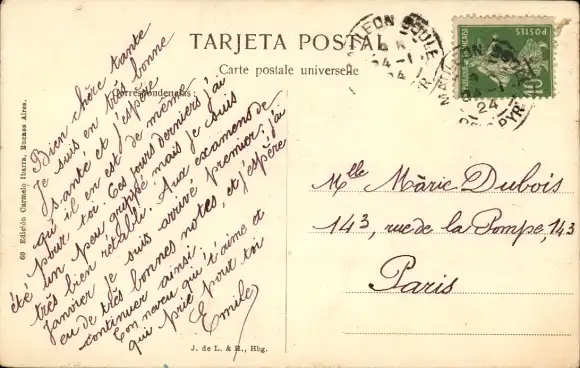 TARJETA POSTAL
Carte postale universelle
Correspondencias:
Bien chère tante
Je suis en très bonne
santé et j'espère
qu'il en est de même
pour toi. Ces jours derniers j'ai
été un peu grippé mais je suis
très bien rétabli. Aux examens de
Janvier je suis arrivé premier; j'ai
eu de très bonnes notes, et j'espère
continuer ainsi.
Ton neveu qui t'aime et
qui prie pour toi
Emile
60 Edición Carmelo Ibarra, Buenos Aires.
J. de L. & H., Hbg.
POSTES
24
Mlle Marie Dubois
143, rue de la Pompe, 143
Paris